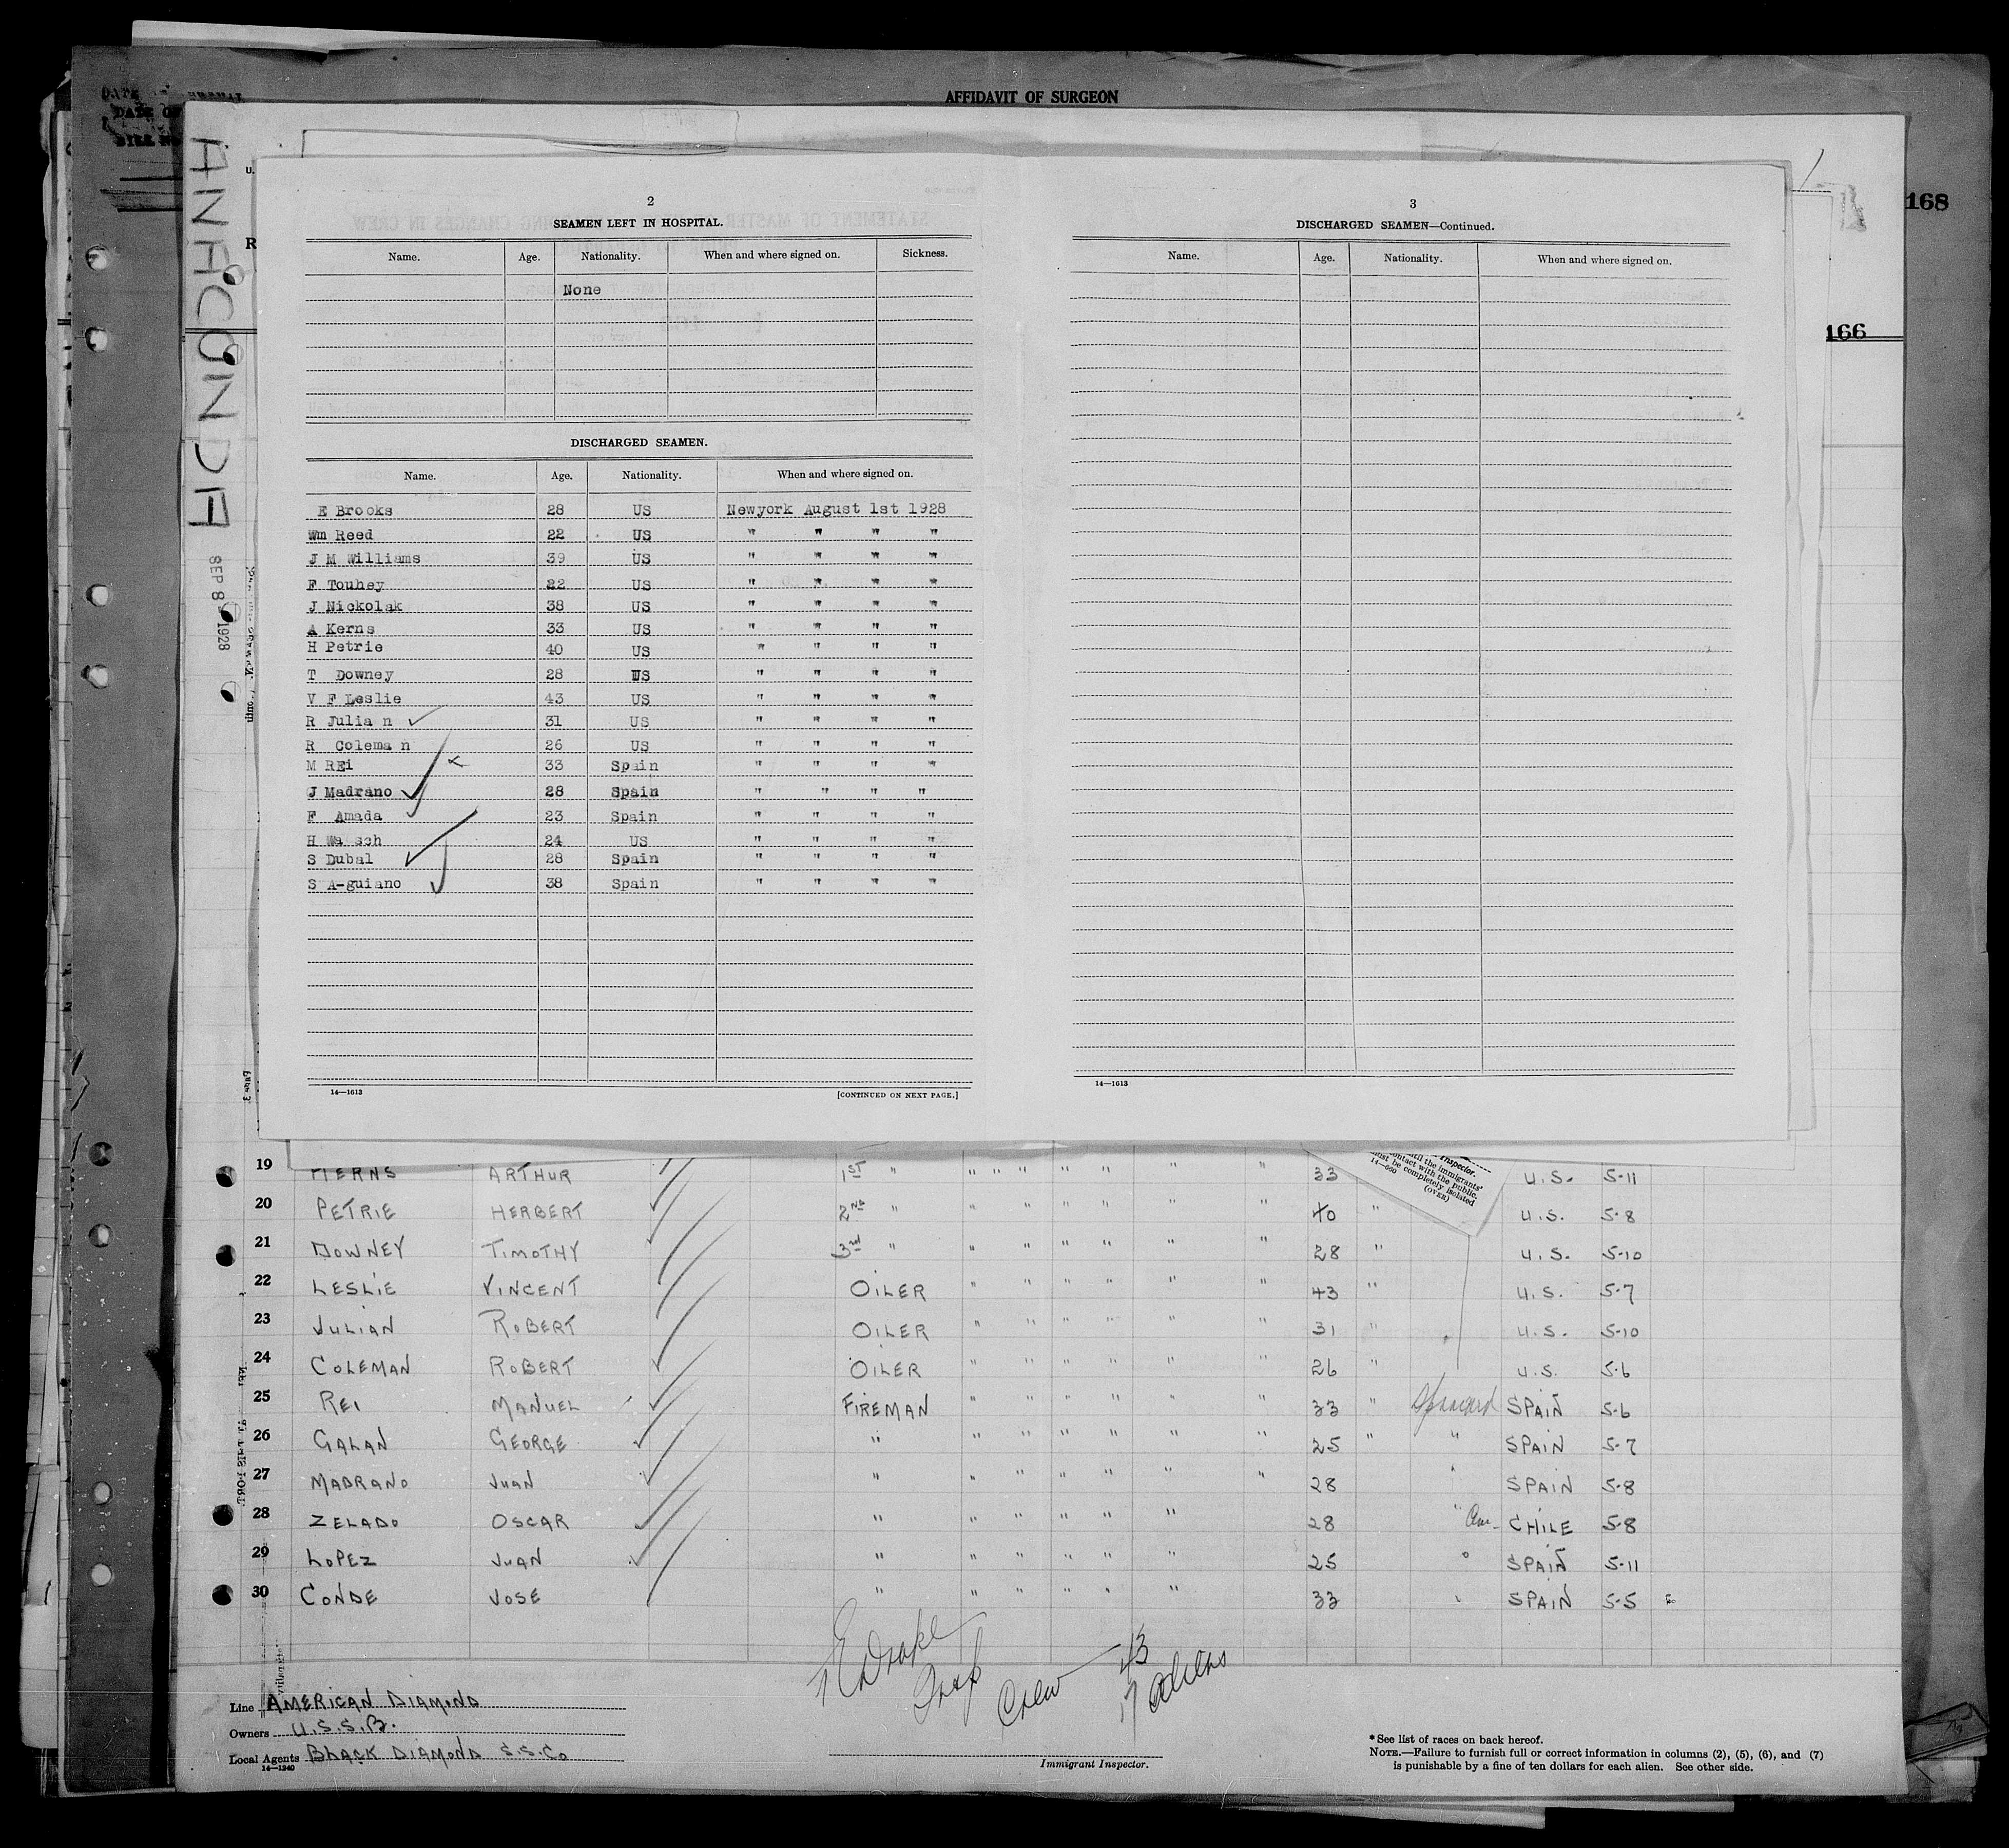 AFFIDAVIT OF SURGEON
168
166
ANACONDA
SEP 8 1928
2
SEAMEN LEFT IN HOSPITAL.
Name. Age. Nationality. When and where signed on. Sickness.
None
DISCHARGED SEAMEN.
Name. Age. Nationality. When and where signed on.
E Brooks 28 US Newyork August 1st 1928
Wm Reed 22 US " " " "
J M Williams 39 US " " " "
F Touhey 22 US " " " "
J Nickolak 38 US " " " "
A Kerns 33 US " " " "
H Petrie 40 US " " " "
T Downey 28 US " " " "
V F Leslie 43 US " " " "
R Julia n 31 US " " " "
R Colema n 26 US " " " "
M REi 33 Spain " " " "
J Madrano 28 Spain " " " "
F Amada 23 Spain " " " "
H 24 US " " " "
S Dubal 28 Spain " " " "
S A-guiano 38 Spain " " " "
14—1613 [CONTINUED ON NEXT PAGE.]
3
DISCHARGED SEAMEN—Continued.
Name. Age. Nationality. When and where signed on.
14—1613
Inspector.
until the immigrants'
contact with the public.
must be completely isolated
14—600 (OVER)
19 ARTHUR 1ST " " " " " " " " 33 U.S. 5-11
20 PETRIE HERBERT 2ND " " " " " " " 40 " U.S. 5-8
21 DOWNEY TIMOTHY 3rd " " " " " " " 28 " U.S. 5-10
22 LESLIE VINCENT OILER " " " " " " 43 " U.S. 5-7
23 JULIAN ROBERT OILER " " " " " " 31 " U.S. 5-10
24 COLEMAN ROBERT OILER " " " " " " 26 " U.S. 5-6
25 REI MANUEL FIREMAN " " " " " " 33 " Spaniard SPAIN 5-6
26 GALAN GEORGE " " " " " " " 25 " " SPAIN 5-7
27 MADRANO JUAN " " " " " " " 28 " SPAIN 5-8
28 ZELADO OSCAR " " " " " " 28 " Am- CHILE 5-8
29 LOPEZ JUAN " " " " " " 25 " SPAIN 5-11
30 CONDE JOSE " " " " " " 33 " SPAIN 5-5
Drake
Insp
Crew 43
17 aliens
Line AMERICAN DIAMOND
Owners U.S.S.B.
Local Agents BLACK DIAMOND S.S.Co
14—1240
Immigrant Inspector.
*See list of races on back hereof.
NOTE.—Failure to furnish full or correct information in columns (2), (5), (6), and (7)
is punishable by a fine of ten dollars for each alien. See other side.